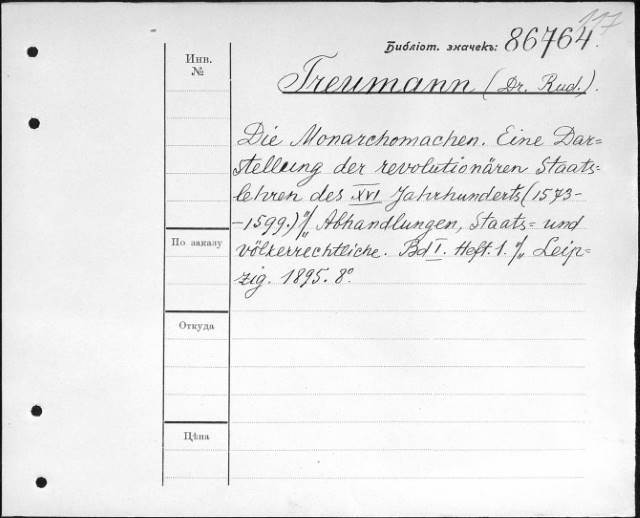 117
Библіот. значекъ: 86764.
Инв.
№
Treumann (Dr. Rud.).
Die Monarchomachen. Eine Dar=
stellung der revolutionären Staats=
lehren des XVI Jahrhunderts (1573-
-1599.) // Abhandlungen, Staats= und
По заказу
völkerrechtliche. Bd I. Heft. 1. // Leip=
zig. 1895. 8°
Откуда
Цѣна